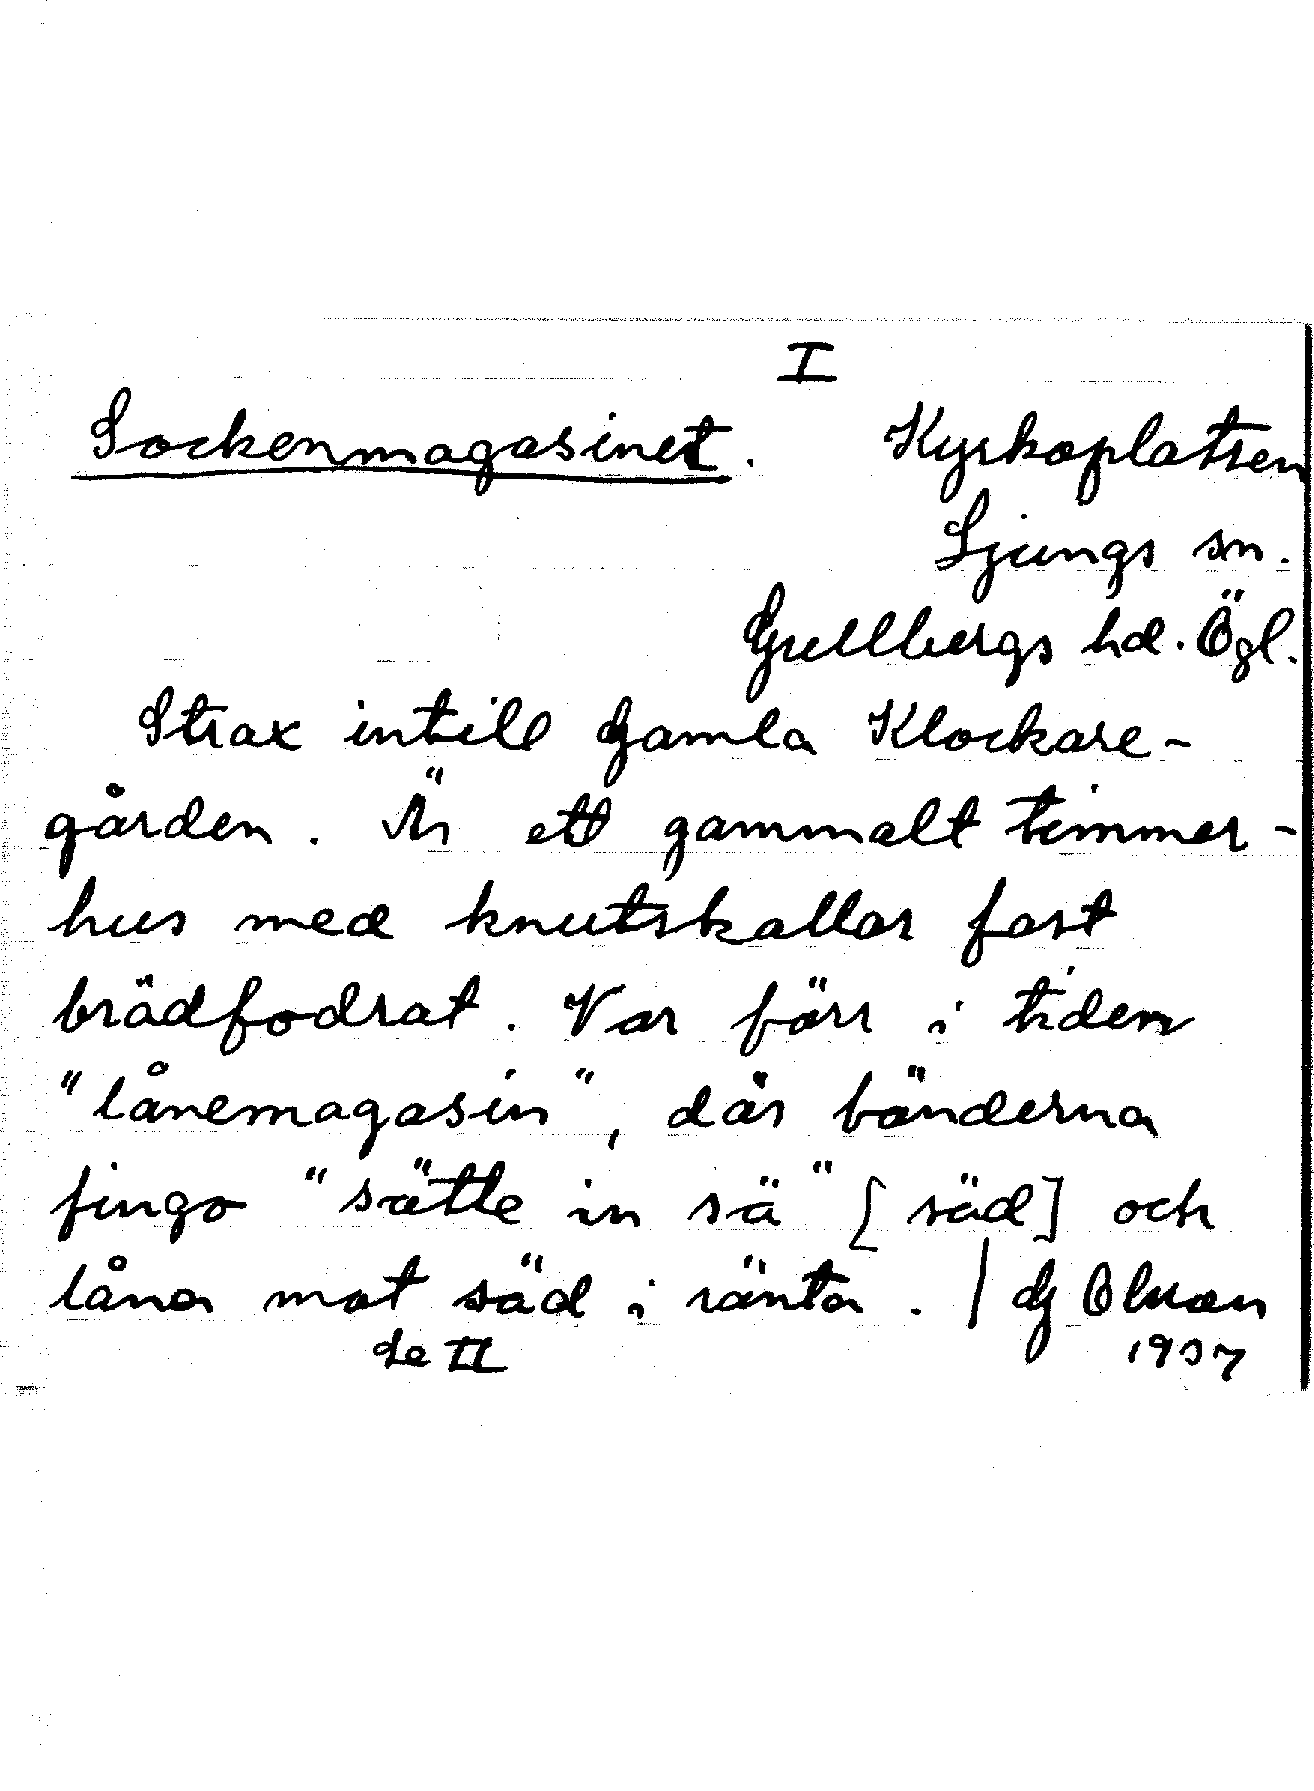 I
Sockenmagasinet. Kyrkoplatsen
Ljungs sn.
Gullbergs hd. Ögl.
Strax intill Gamla Klockare-
gården. Är ett gammalt timmer-
hus med knutskallar fast
brädfodrat. Var förr i tiden
"lånemagasin", där bönderna
fingo "sätte in sä" [säd] och
låna mot säd i ränta. /
se II 1937